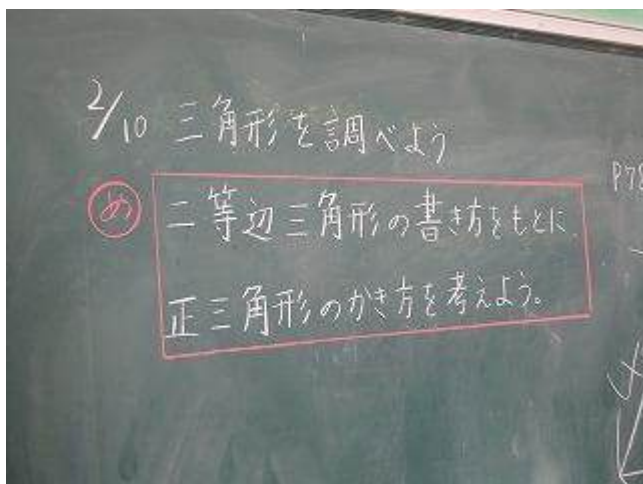 2/10 三角形を調べよう
め 二等辺三角形の書き方をもとに、
正三角形のかき方を考えよう。
P78